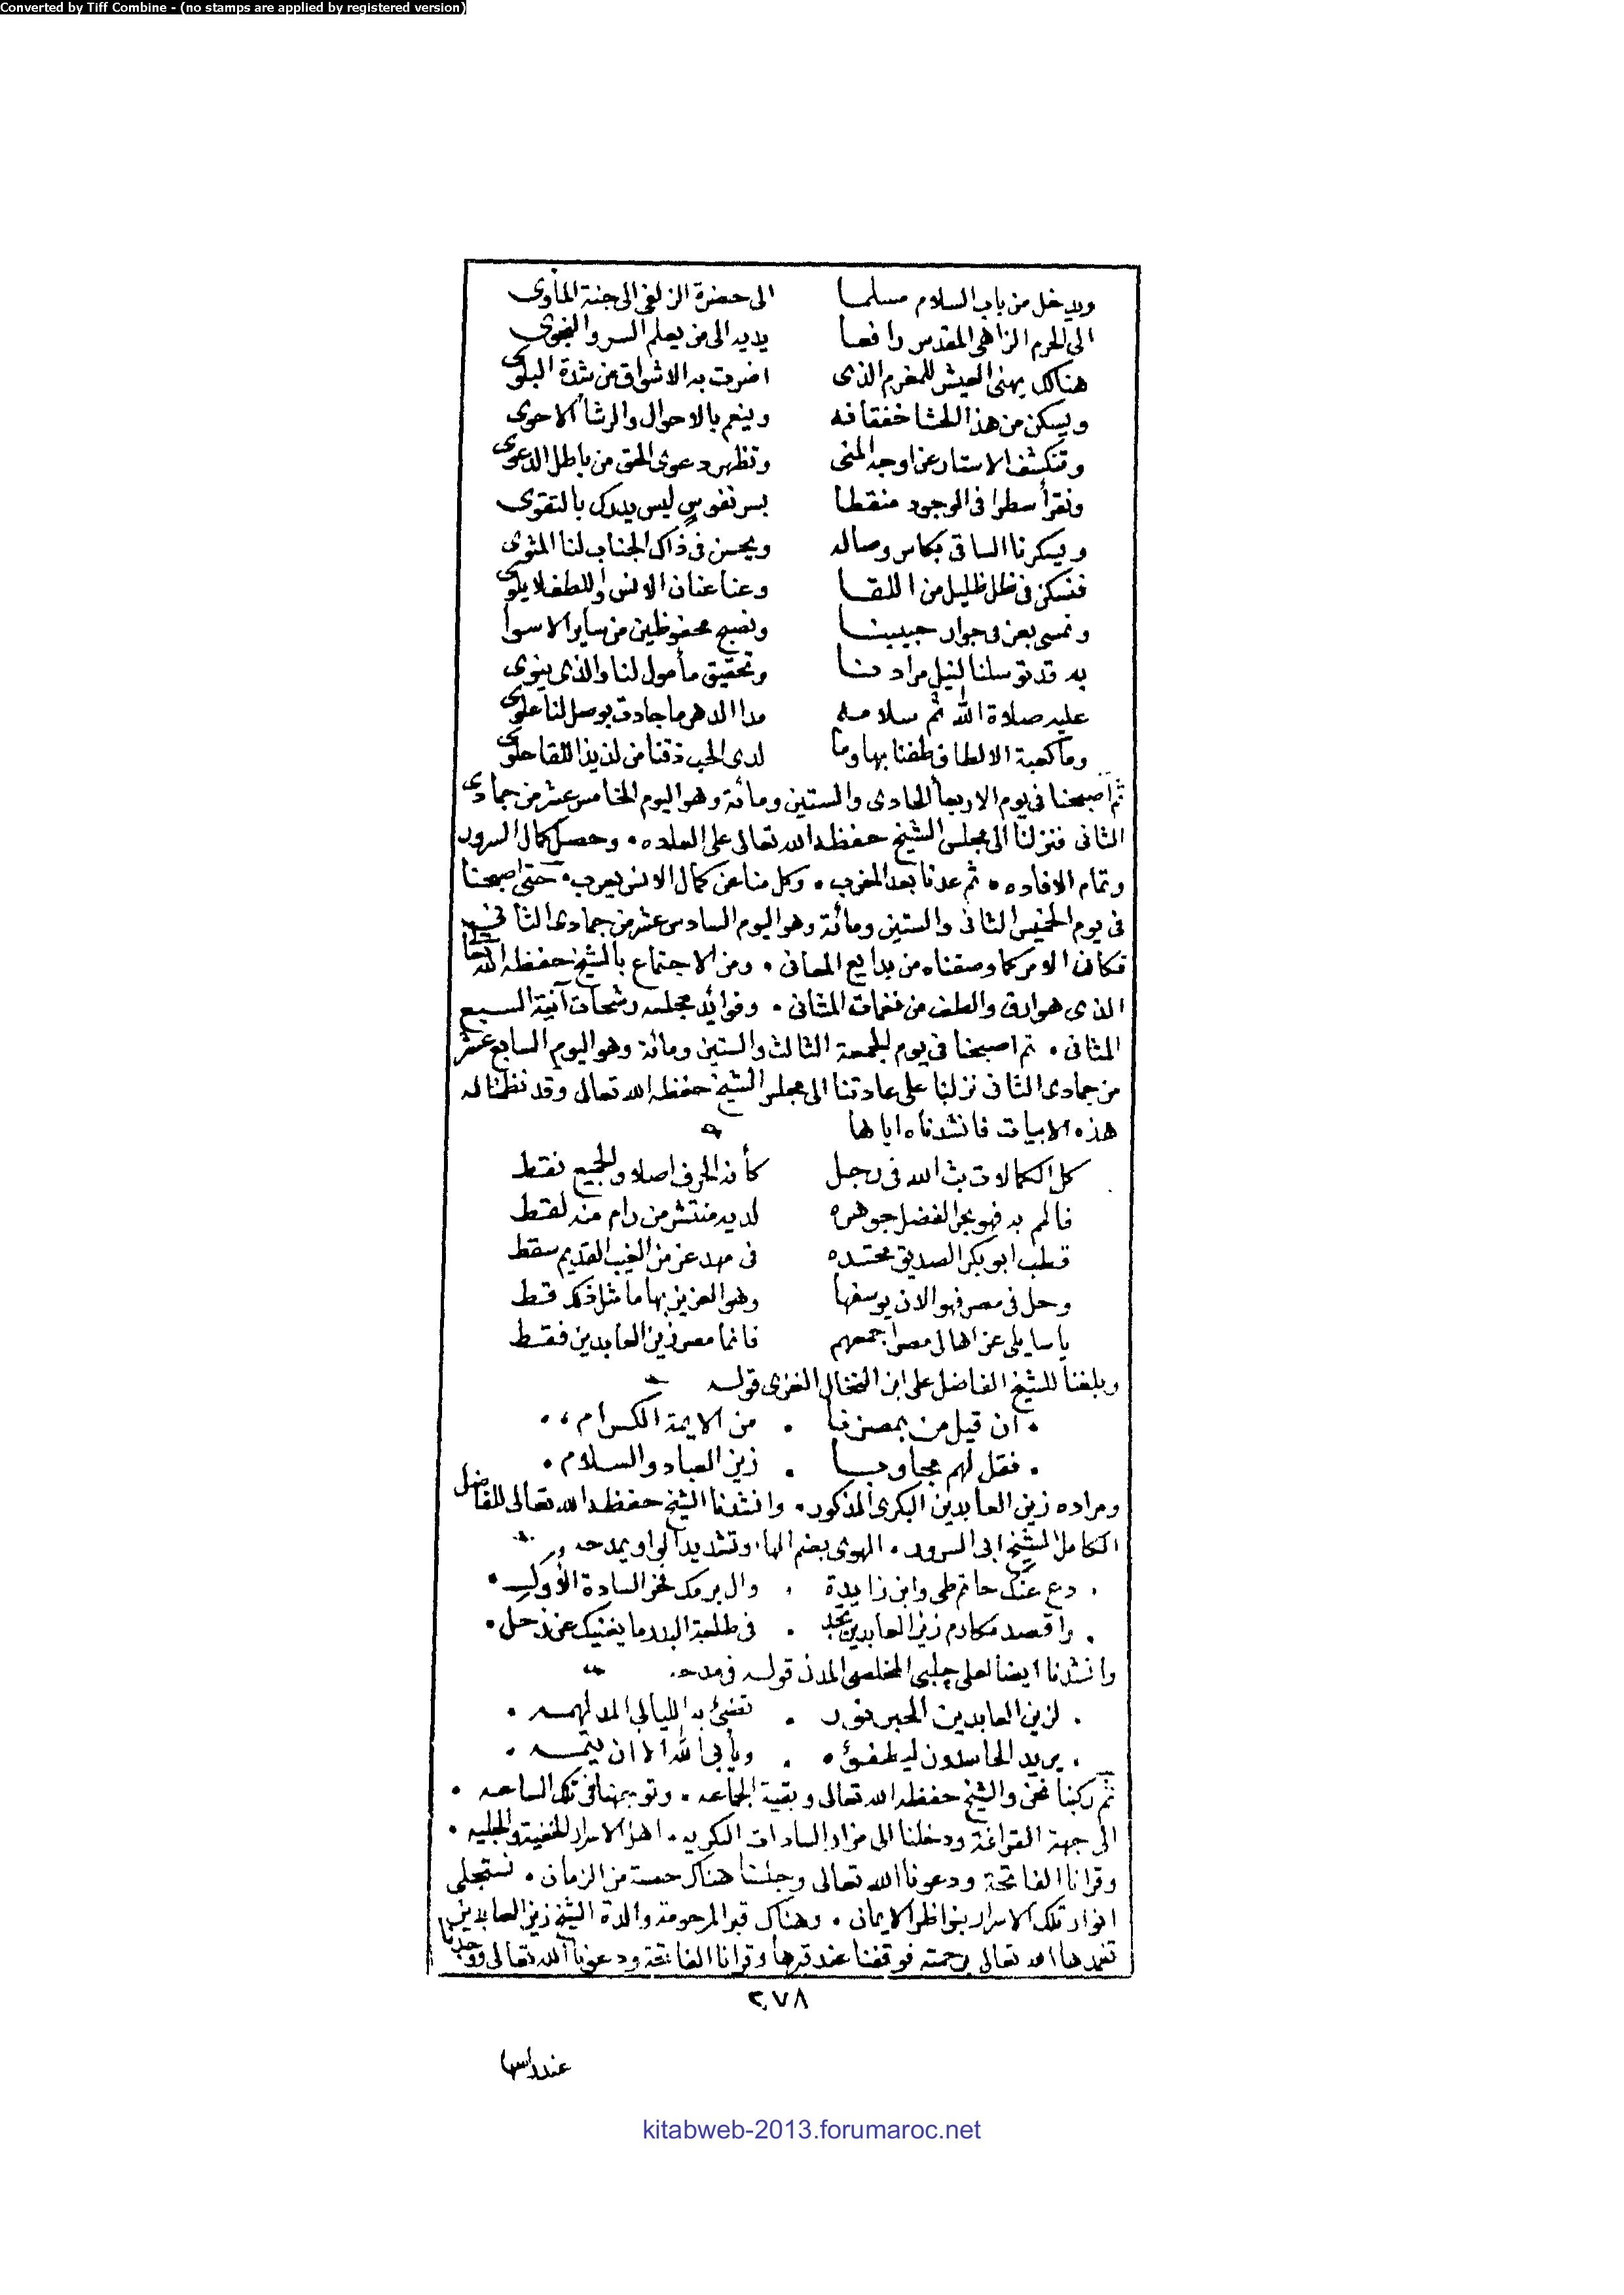 Converted by Tiff Combine - (no stamps are applied by registered version)
ويدخل من باب السلام مسلما الى حضرة الزلفى الى جنة المأوى
الى الحرم الزاهى المقدس رافعا يديه الى من يعلم السر والنجوى
هنالك يهنى العيش للمغرم الذى اضرت به الاشواق من شدة البلوى
ويسكن من هذا الحشا خفقانه وينعم بالاحوال والرشأ الاحوى
وتنكشف الاستار عن اوجه المنى وتظهر دعوى الحق من باطل الدعوى
ونقرأ سطرا فى الوجود منقطا بسر نفوس ليس يدرك بالتقوى
ويسكرنا الساقى بكاس وصاله ويحسن فى ذاك الجناب لنا المثوى
فنسكن فى ظل ظليل من اللقا وعنا عنان الانس واللطف لا يلوى
ونمسى بعز فى جوار حبيبنا ونصبح محفوظين من ساير الاسوا
به قد توسلنا لنيل مرادنا وتحقيق مأمول لنا والذى ينوى
عليه صلاة الله ثم سلامه مدا الدهر ما جادت بوصل لنا علوى
وما كعبة الالطاف طفنا بها وما لدى الحب ذقنا من لذيذ اللقا حلوى
ثم اصبحنا فى يوم الاربعا الحادى والستين ومائة وهو اليوم الخامس عشر من جمادى
الثانى فنزلنا الى مجلس الشيخ حفظه الله تعالى على العاده . وحصل كمال السرور
وتمام الافاده . ثم عدنا بعد المغرب . وكل منا عن كمال الانس يعرب . حتى اصبحنا
فى يوم الخميس الثانى والستين ومائة وهو اليوم السادس عشر من جمادى الثانى
فكان الامر كما وصفناه من بدايع المعانى . ومن الاجتماع بالشيخ حفظه الله تعالى
الذى هو ارق والطف من نغمات المثانى . وفوائد مجلسه رشحات آنية السبع
المثانى . ثم اصبحنا فى يوم الجمعة الثالث والستين ومائة وهو اليوم السابع عشر
من جمادى الثانى نزلنا على عادتنا الى مجلس الشيخ حفظه الله تعالى وقد نظمنا له
هذه الابيات فانشدناه اياها
كل الكمالات بث الله فى رجل كأنه الحرف اصلا والجميع نقط
فالمم به فهو بحر الفضل جوهره لديه منتشر من رام منه لقط
قطب ابو بكر الصديق محتده فى مهد عز من الغيب القديم سقط
وحل فى مصر فهو الان يوسفها وهو العزيز بها ما مثل ذلك قط
يا سايلى عن اهالى مصر اجمعهم فانما مصر زين العابدين فقط
وبلغنا للشيخ الفاضل على ابن الغزى قوله
. ان قيل من بمصرنا . من الايمة الكرام .
. فقل لهم مجاوبا . زين العباد والسلام .
ومراده زين العابدين البكرى المذكور . وانشدنا الشيخ حفظه الله تعالى للفاضل
الكامل الشيخ ابى السرور . الهوى بضم الهاء وتشديد الواو يمدحه
. دع عنك حاتم طى وابن زايدة . وال برمك فخر السادة الأول .
. واقصد مكارم زين العابدين تجد . فى طلعة البدر ما يغنيك عن زحل .
وانشدنا ايضا لعلى چلبى المخلصى المدنى قوله فى مدحه
. لزين العابدين الحبر نور . تضئ به الليالى المدلهمه .
. يريد الحاسدون ليطفئوه . ويأبى الله الا ان يتمه .
ثم ركبنا نحن والشيخ حفظه الله تعالى وبقية الجماعه . وتوجهنا فى تلك الساعه .
الى جهة القرافة ودخلنا الى مزار السادات البكريه . اهل الاسرار الخفية والجليه .
وقرانا الفاتحة ودعونا الله تعالى وجلسنا هناك حصة من الزمان . نستجلى
انوار تلك الاسرار بنواظر الايمان . وهناك قبر المرحومة والدة الشيخ زين العابدين
تغمدها الله تعالى برحمته فوقفنا عند قبرها وقرانا الفاتحة ودعونا الله تعالى ووجدنا
٢٧٨
عند راسها
kitabweb-2013.forumaroc.net